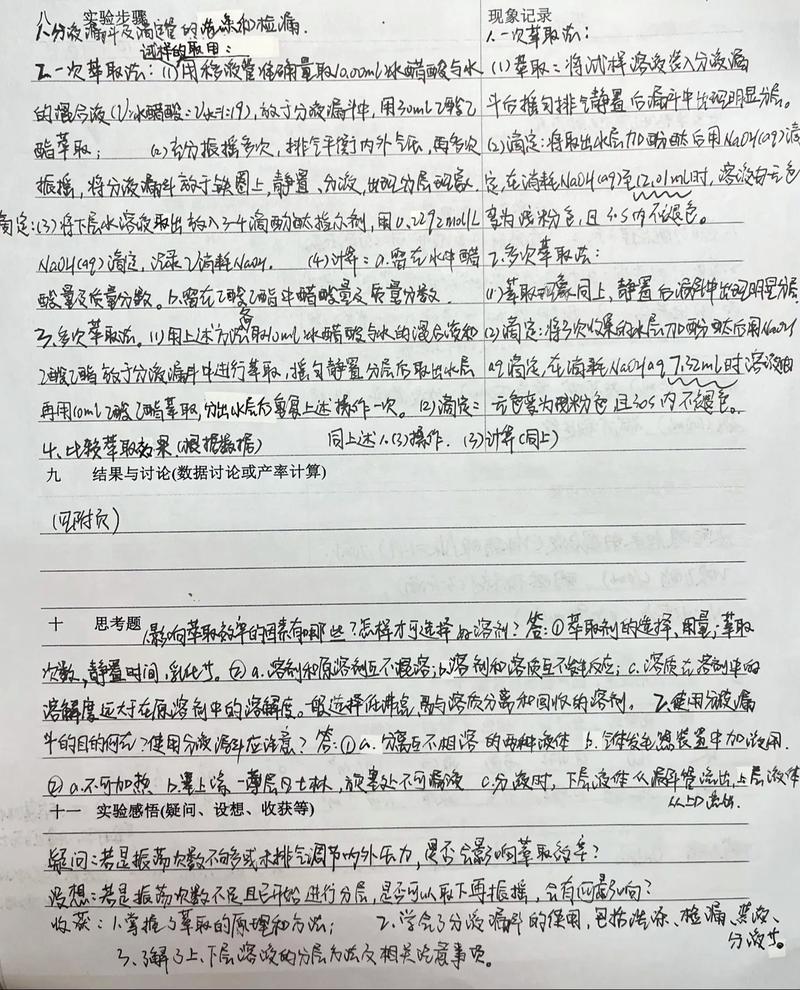 八 实验步骤
1.分液漏斗及滴定管的洗涤和检漏.
试样的取用:
2.一次萃取法:(1)用移液管准确量取10.00ml冰醋酸与水
的混合液(V冰醋酸:V水=1:19),放于分液漏斗中,用30ml乙酸乙
酯萃取; (2)充分振摇多次,排气平衡内外气压,再多次
振摇,将分液漏斗放于铁圈上,静置、分液,出现分层现象.
滴定:(3)将下层水溶液取出放入3-4滴酚酞指示剂,用0.2292mol/L
NaOH(aq)滴定,记录乙消耗NaOH. (4)计算:a.留在水中醋
酸量及质量分数。b.留在乙酸乙酯中醋酸量及质量分数.
3.多次萃取法。(1)用上述方法各取10ml冰醋酸与水的混合液和
乙酸乙酯放于分液漏斗中进行萃取,摇匀静置分层后取出水层
再用10ml乙酸乙酯萃取,分出水层后重复上述操作一次。(2)滴定:
4.比较萃取效果(根据数据) 同上述1.(3)操作.(3)计算(同上)
现象记录
1.一次萃取法:
(1)萃取:将试样溶液装入分液漏
斗后摇匀排气静置后漏斗中出现明显分层。
(2)滴定:将取出水层加酚酞后用NaOH(aq)滴
定,在消耗NaOH(aq)至12.01ml时,溶液由无色
变为浅粉色,且30S内不褪色。
2.多次萃取法:
(1)萃取现象同上,静置后漏斗中出现明显分层
(2)滴定:将3次收集的水层加酚酞后用NaOH
aq滴定,在消耗NaOH aq 7.32ml时溶液由
无色变为浅粉色且30S内不褪色。
九 结果与讨论(数据讨论或产率计算)
(见附页)
十 思考题
1.影响萃取效率的因素有哪些?怎样才可选择好溶剂?答:①萃取剂的选择、用量;萃取
次数,静置时间,乳化等。② a.溶剂和原溶剂互不混溶;b.溶剂和溶质互不发生反应;c.溶质在溶剂中的
溶解度远大于在原溶剂中的溶解度。一般选择低沸点,易与溶质分离和回收的溶剂。 2.使用分液漏
斗的目的何在?使用分液漏斗应注意?答:① a.分离互不相溶的两种液体 b.气体发生装置中加液用.
② a.不可加热 b.塞上涂一薄层凡士林,旋塞处不可漏液 c.分液时,下层液体从漏斗管流出,上层液体
从上口流出.
十一 实验感悟(疑问、设想、收获等)
疑问:若是振荡次数不够多或未排气调节内外压力,是否会影响萃取效率?
设想:若是振荡次数不足且已开始进行分层,是否可以取下再振摇,会有何影响?
收获:1.掌握了萃取的原理和方法; 2.学会了分液漏斗的使用,包括洗涤、检漏、装液、
分液等。
3.了解了上、下层溶液的分层方法及相关注意事项。